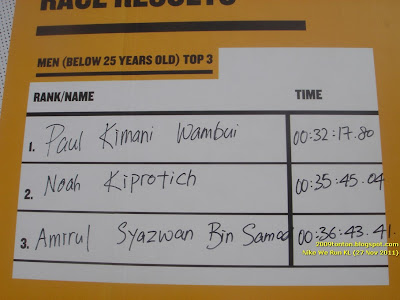 RACE RESULTS
MEN (BELOW 25 YEARS OLD) TOP 3
RANK/NAME TIME
1. Paul Kimani Wambui 00:32:17.80
2. Noah Kiprotich 00:35:45.04
3. Amirul Syazwan Bin Samad 00:36:43.41
2009tonton.blogspot.com
Nike We Run KL (27 Nov 2011)